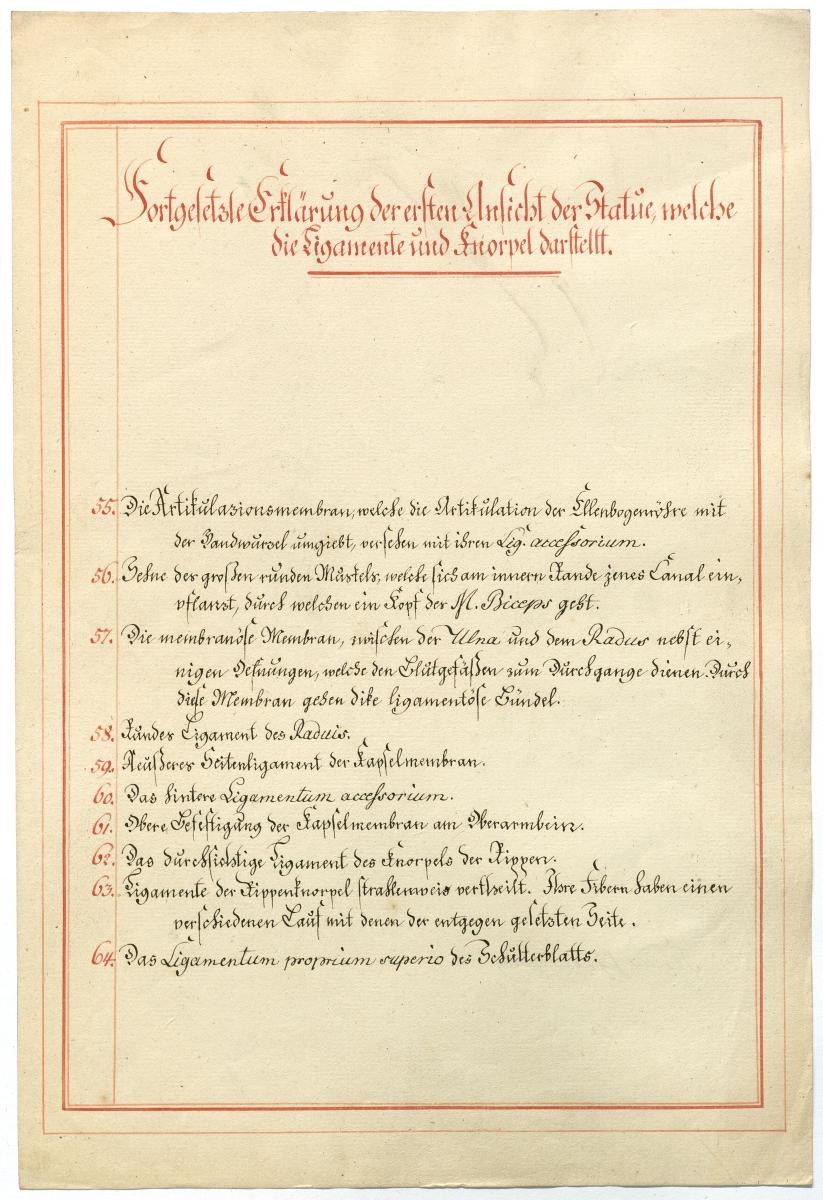 Fortgesetzte Erklärung der ersten Ansicht der Statue, welche
die Ligamente und Knorpel darstellt.
55. Die Artikulazionsmembran, welche die Artikulation der Ellenbogenröhre mit
der Handwurzel umgiebt, versehen mit ihren Lig. accessorium.
56. Sehne des großen runden Muskels, welche sich am innern Rande jenes Canal ein-
pflanzt, durch welchen ein Kopf der M. Biceps geht.
57. Die membranöse Membran, zwischen der Ulna und dem Radus nebst ei-
nigen Oefnungen, welche den Blutgefäßen zum Durchgange dienen. Durch
diese Membran gehen dike ligamentöse Bündel.
58. Rundes Ligament des Raduis.
59. Aeußeres Seitenligament der Kapselmembran.
60. Das hintere Ligamentum accessorium.
61. Obere Befestigung der Kapselmembran am Oberarmbein.
62. Das durchsichtige Ligament des Knorpels der Rippen.
63. Ligamente der Rippenknorpel strahlenweis vertheilt. Ihre Fibern haben einen
verschiedenen Lauf mit denen der entgegen gesetzten Seite.
64. Das Ligamentum proprium superio des Schulterblatts.